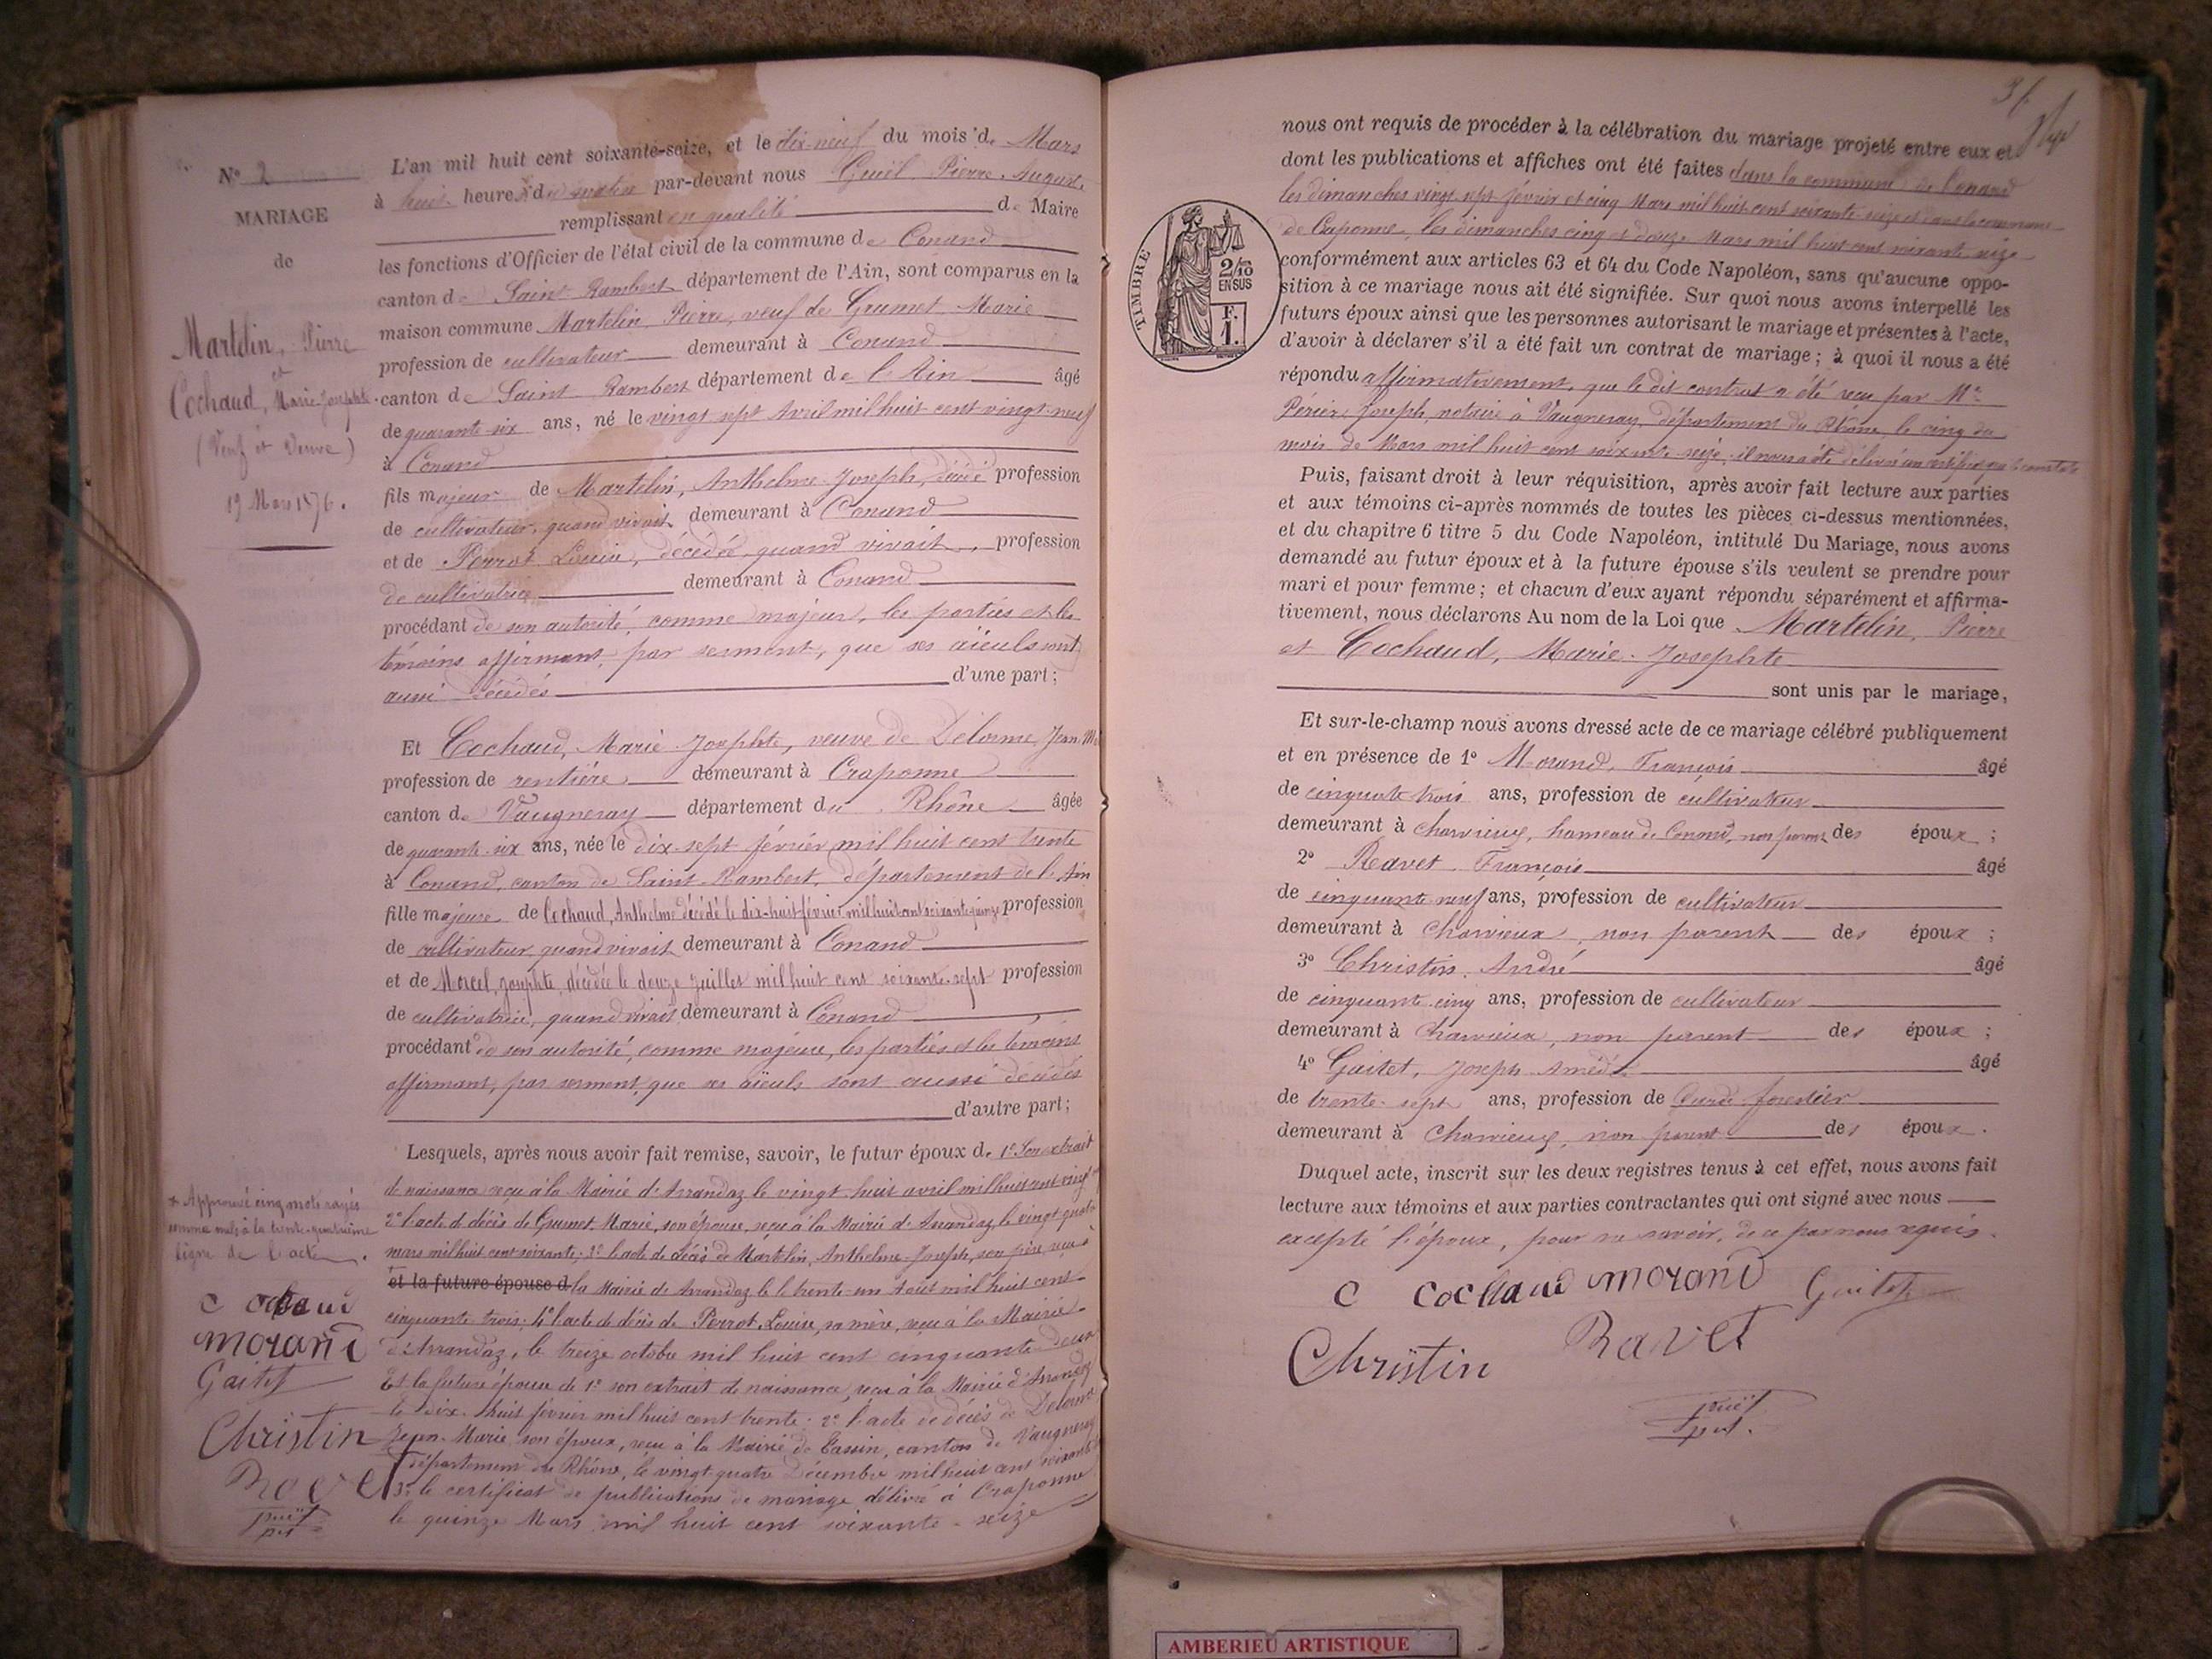 Nº 2
MARIAGE
de
Martelin, Pierre
et
Cochaud, Marie-Josephte.
(Veuf et Veuve)
19 Mars 1876.
L'an mil huit cent soixante-seize, et le dix-neuf du mois de Mars
à huit heures du matin par-devant nous Guiël Pierre-Auguste
remplissant en qualité de Maire
les fonctions d'Officier de l'état civil de la commune de Conand
canton de Saint-Rambert département de l'Ain, sont comparus en la
maison commune Martelin, Pierre, veuf de Grumet Marie
profession de cultivateur demeurant à Conand
canton de Saint-Rambert département de l'Ain âgé
de quarante-six ans, né le vingt sept Avril mil huit cent vingt-neuf
à Conand
fils majeur de Martelin, Anthelme-Joseph, décédé profession
de cultivateur, quand vivait demeurant à Conand
et de Perrot Louise, décédée, quand vivait, profession
de cultivatrice demeurant à Conand
procédant de son autorité, comme majeur, les parties et les
témoins affirmant, par serment, que ses aïeuls sont
aussi décédés d'une part;
Et Cochaud, Marie-Josephte, veuve de Delorme, Jean-M
profession de rentière demeurant à Craponne
canton de Vaugneray département du Rhône âgée
de quarante-six ans, née le dix-sept février mil huit cent trente
à Conand, canton de Saint-Rambert, département de l'Ain
fille majeure de Cochaud, Anthelme décédé le dix-huit février mil huit cent soixante quinze profession
de cultivateur quand vivait demeurant à Conand
et de Morcel, Josephte, décédée le douze juillet mil huit cent soixante-sept profession
de cultivatrice, quand vivait demeurant à Conand
procédant de son autorité, comme majeure, les parties et les témoins
affirmant, par serment, que ses aïeuls sont aussi décédés
d'autre part;
Lesquels, après nous avoir fait remise, savoir, le futur époux de 1º Son extrait
de naissance reçu à la Mairie d'Arrandaz le vingt-huit avril mil huit cent vingt
2º l'acte de décès de Grumet Marie, son épouse, reçu à la Mairie d'Arrandaz le vingt-quatre
mars mil huit cent soixante; 3º l'acte de décès de Martelin, Anthelme-Joseph, son père, reçu à
et la future épouse d la Mairie de Arrandaz le trente-un Août mil huit cent
cinquante trois; 4º l'acte de décès de Perrot, Louise, sa mère, reçu à la Mairie
d'Arrandaz, le treize octobre mil huit cent cinquante deux
Et la future épouse de 1º son extrait de naissance, reçu à la Mairie d'Arrandaz
le dix-huit février mil huit cent trente. 2º l'acte de décès de Delorme
Jean-Marie son époux, reçu à la Mairie de Tassin, canton de Vaugneray
département du Rhône, le vingt-quatre Décembre mil huit cent soixante
3º le certificat de publications de mariage délivré à Craponne
le quinze Mars mil huit cent soixante-seize
+ Approuvé cinq mots rayés
comme nuls à la trente-quatrième
ligne de l'acte.
C cochaud
morand
Gaitet
Christin
Ravet
nous ont requis de procéder à la célébration du mariage projeté entre eux et
dont les publications et affiches ont été faites dans la commune de Conand
les dimanches vingt sept février et cinq Mars mil huit cent soixante-seize et dans la commune
de Caponne, les dimanches cinq et douze Mars mil huit cent soixante seize
TIMBRE
2/10
EN SUS
F.
1.
conformément aux articles 63 et 64 du Code Napoléon, sans qu'aucune oppo-
sition à ce mariage nous ait été signifiée. Sur quoi nous avons interpellé les
futurs époux ainsi que les personnes autorisant le mariage et présentes à l'acte,
d'avoir à déclarer s'il a été fait un contrat de mariage; à quoi il nous a été
répondu affirmativement, que le dit contrat a été reçu par Me
Périer, Joseph, notaire à Vaugneray, département du Rhône le cinq du
mois de Mars mil huit cent soixante-seize; il nous a été délivré un certificat qui le constate
Puis, faisant droit à leur réquisition, après avoir fait lecture aux parties
et aux témoins ci-après nommés de toutes les pièces ci-dessus mentionnées,
et du chapitre 6 titre 5 du Code Napoléon, intitulé Du Mariage, nous avons
demandé au futur époux et à la future épouse s'ils veulent se prendre pour
mari et pour femme; et chacun d'eux ayant répondu séparément et affirma-
tivement, nous déclarons Au nom de la Loi que Martelin, Pierre
et Cochaud, Marie-Josephte
sont unis par le mariage,
Et sur-le-champ nous avons dressé acte de ce mariage célébré publiquement
et en présence de 1º Morand, François âgé
de cinquante trois ans, profession de cultivateur
demeurant à Charvieux, hameau de Conand, non parent des époux;
2º Ravet François âgé
de cinquante neuf ans, profession de cultivateur
demeurant à Charvieux, non parent des époux;
3º Christin, André âgé
de cinquante-cinq ans, profession de cultivateur
demeurant à Charvieux, non parent des époux;
4º Gaitet, Joseph-Amédé âgé
de trente-sept ans, profession de Garde forestier
demeurant à Charvieux, non parent des époux.
Duquel acte, inscrit sur les deux registres tenus à cet effet, nous avons fait
lecture aux témoins et aux parties contractantes qui ont signé avec nous
excepté l'époux, pour ne savoir, de ce par nous requis.
C cochaud morand Gaitet
Christin Ravet
AMBERIEU ARTISTIQUE